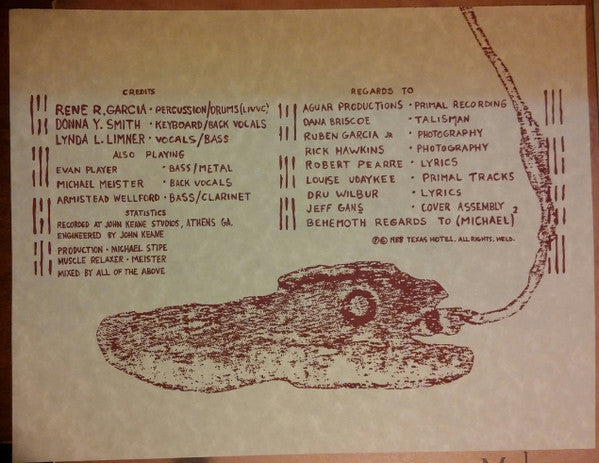 CREDITS
RENE R. GARCIA • PERCUSSION/DRUMS (LIVUC)
DONNA Y. SMITH • KEYBOARD/BACK VOCALS
LYNDA L. LIMNER • VOCALS/BASS
ALSO PLAYING
EVAN PLAYER • BASS/METAL
MICHAEL MEISTER • BACK VOCALS
ARMISTEAD WELLFORD • BASS/CLARINET
STATISTICS
RECORDED AT JOHN KEANE STUDIOS, ATHENS GA.
ENGINEERED BY JOHN KEANE
PRODUCTION • MICHAEL STIPE
MUSCLE RELAXER • MEISTER
MIXED BY ALL OF THE ABOVE
REGARDS TO
AGUAR PRODUCTIONS • PRIMAL RECORDING
DANA BRISCOE • TALISMAN
RUBEN GARCIA JR • PHOTOGRAPHY
RICK HAWKINS • PHOTOGRAPHY
ROBERT PEARRE • LYRICS
LOUISE UDAYKEE • PRIMAL TRACKS
DRU WILBUR • LYRICS
JEFF GANS • COVER ASSEMBLY
BEHEMOTH REGARDS TO (MICHAEL)²
℗© 1988 TEXAS HOTEL. ALL RIGHTS, HELD.